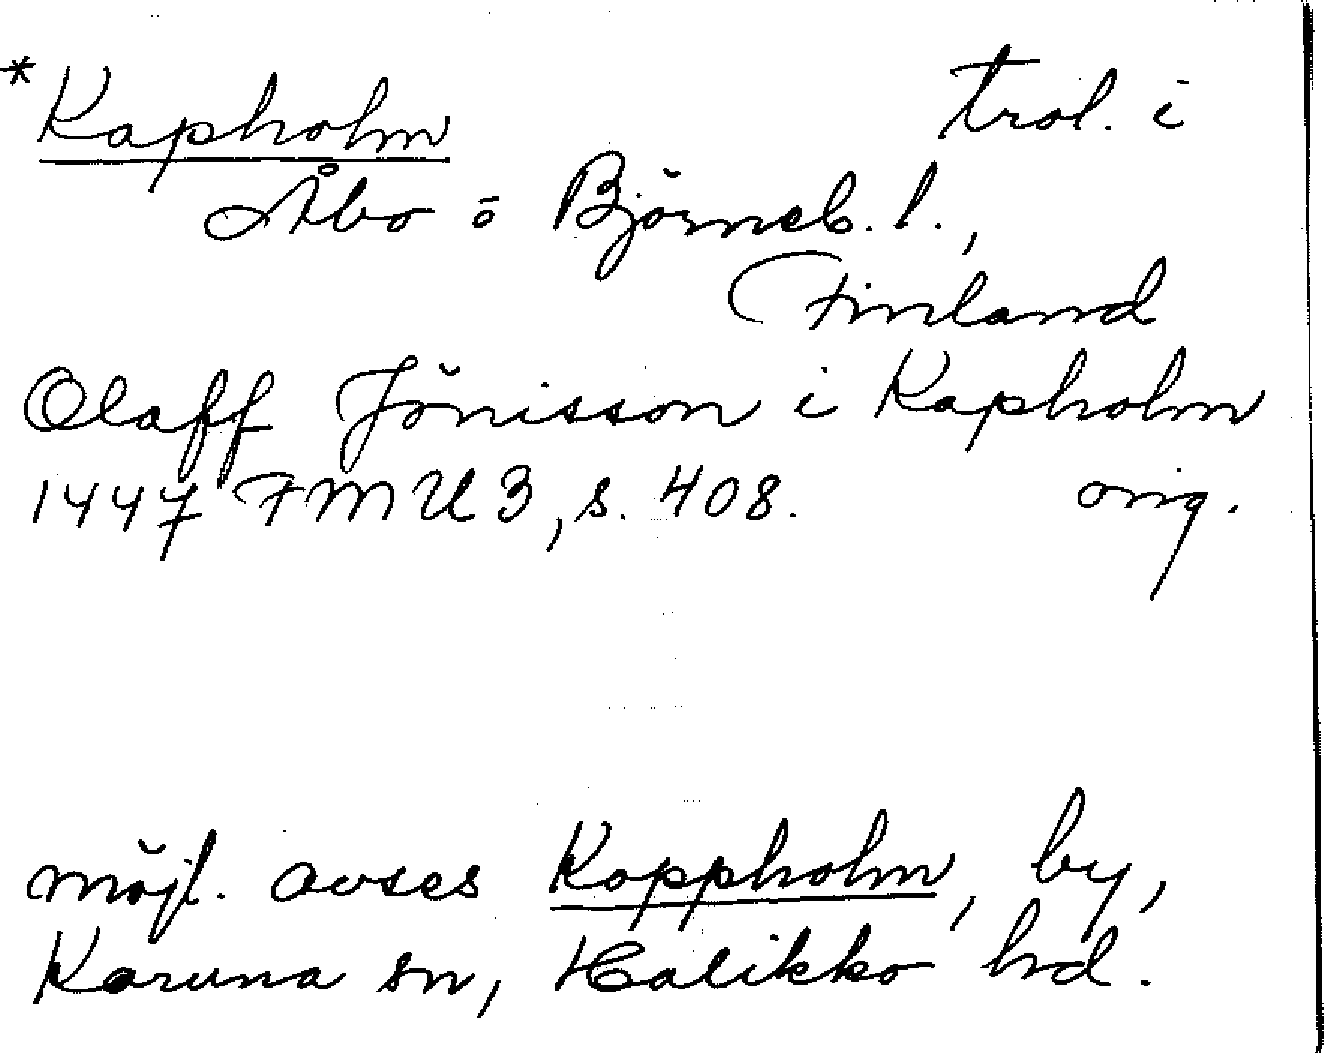 *Kapholm trol. i
Åbo o Björneb. l.,
Finland
Olaff Jönisson i Kapholm
1447 FMU 3, s. 408. orig.
möjl. avses Koppholm, by,
Karuna sn, Halikko hd.